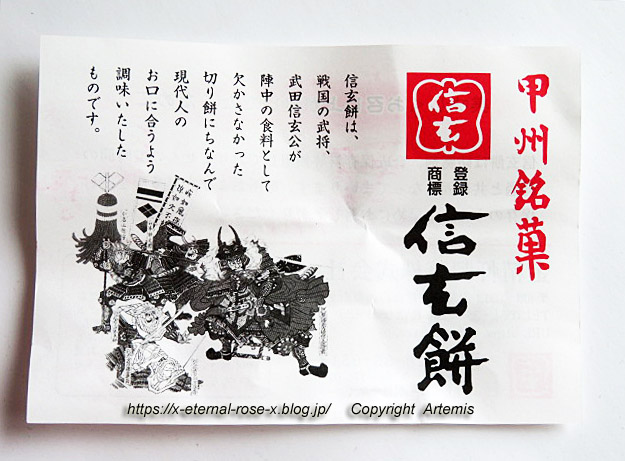 甲州銘菓
信玄
登録
商標
信玄餅
信玄餅は、
戦国の武将、
武田信玄公が
陣中の食料として
欠かさなかった
切り餅にちなんで
現代人の
お口に合うよう
調味いたした
ものです。
https://x-eternal-rose-x.blog.jp/ Copyright Artemis